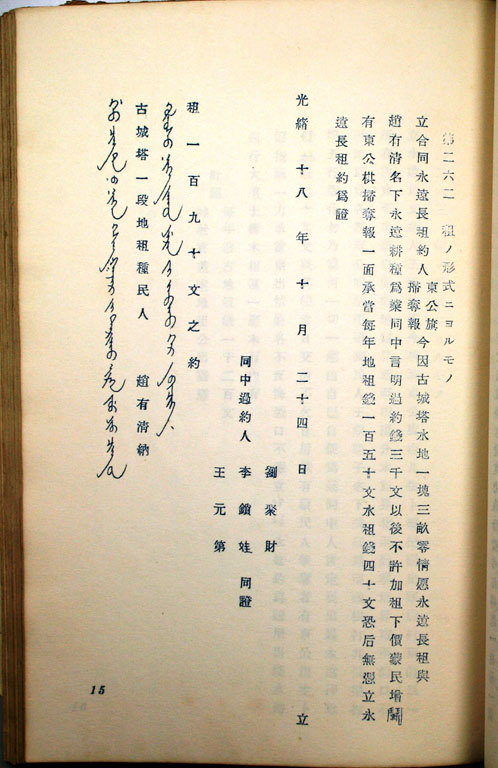 第二六二 租ノ形式ニヨルモノ
立合同永遠長租約人 東公旗 掃奪報 今因古城塔水地一塊三畝零情愿永遠長租與
趙有清名下永遠耕種爲業同中言明過約錢三千文以後不許加租下價蒙民增鬪
有東公棋掃奪報一面承當每年地租錢一百五十文水租錢四十文恐后無憑立永
遠長租約爲證
光緒十八年十月二十四日 立
劉聚財
同中過約人 李鎖娃 同證
王元第
租一百九十文之約
古城塔一段地租種民人 趙有清納
15